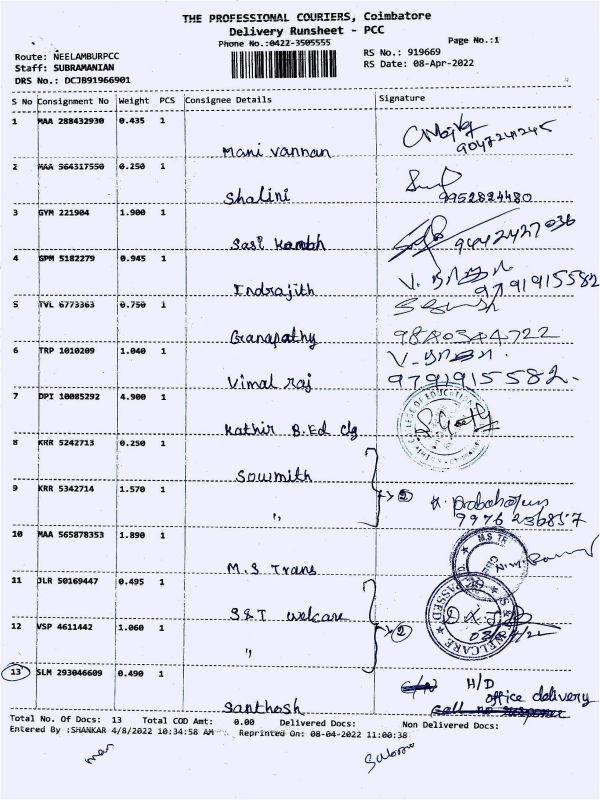 THE PROFESSIONAL COURIERS, Coimbatore
Delivery Runsheet - PCC
Phone No.:0422-3505555
Page No.:1
Route: NEELAMBURPCC
Staff: SUBRAMANIAN
DRS No.: DCJB91966901
RS No.: 919669
RS Date: 08-Apr-2022
S No Consignment No Weight PCS Consignee Details Signature
1 MAA 288432930 0.435 1
Mani vannan 9047241245
2 MAA 564317550 0.250 1
Shalini 9952824480
3 GYM 221904 1.900 1
Sasi 9442427036
4 GPM 5182279 0.945 1
Indrajith 9791915582
5 TVL 6773363 0.750 1
Ganapathy 9840344722
6 TRP 1010209 1.040 1
Vimal raj 9791915582
7 DPI 10085292 4.900 1
Kathir B.Ed clg
COLLEGE OF EDUCATION
8 KRR 5242713 0.250 1
Sowmith
9 KRR 5342714 1.570 1
"
9976236857
10 MAA 565878353 1.890 1
M.S Trans
M.S. TR
11 JLR 50169447 0.495 1
S&T welcare
12 VSP 4611442 1.060 1
" 2
PASSED
WELCARE
13 SLM 293046609 0.490 1
Santhosh
H/D
office delivery
Total No. Of Docs: 13 Total COD Amt: 0.00 Delivered Docs: Non Delivered Docs:
Entered By :SHANKAR 4/8/2022 10:34:58 AM Reprinted On: 08-04-2022 11:00:38